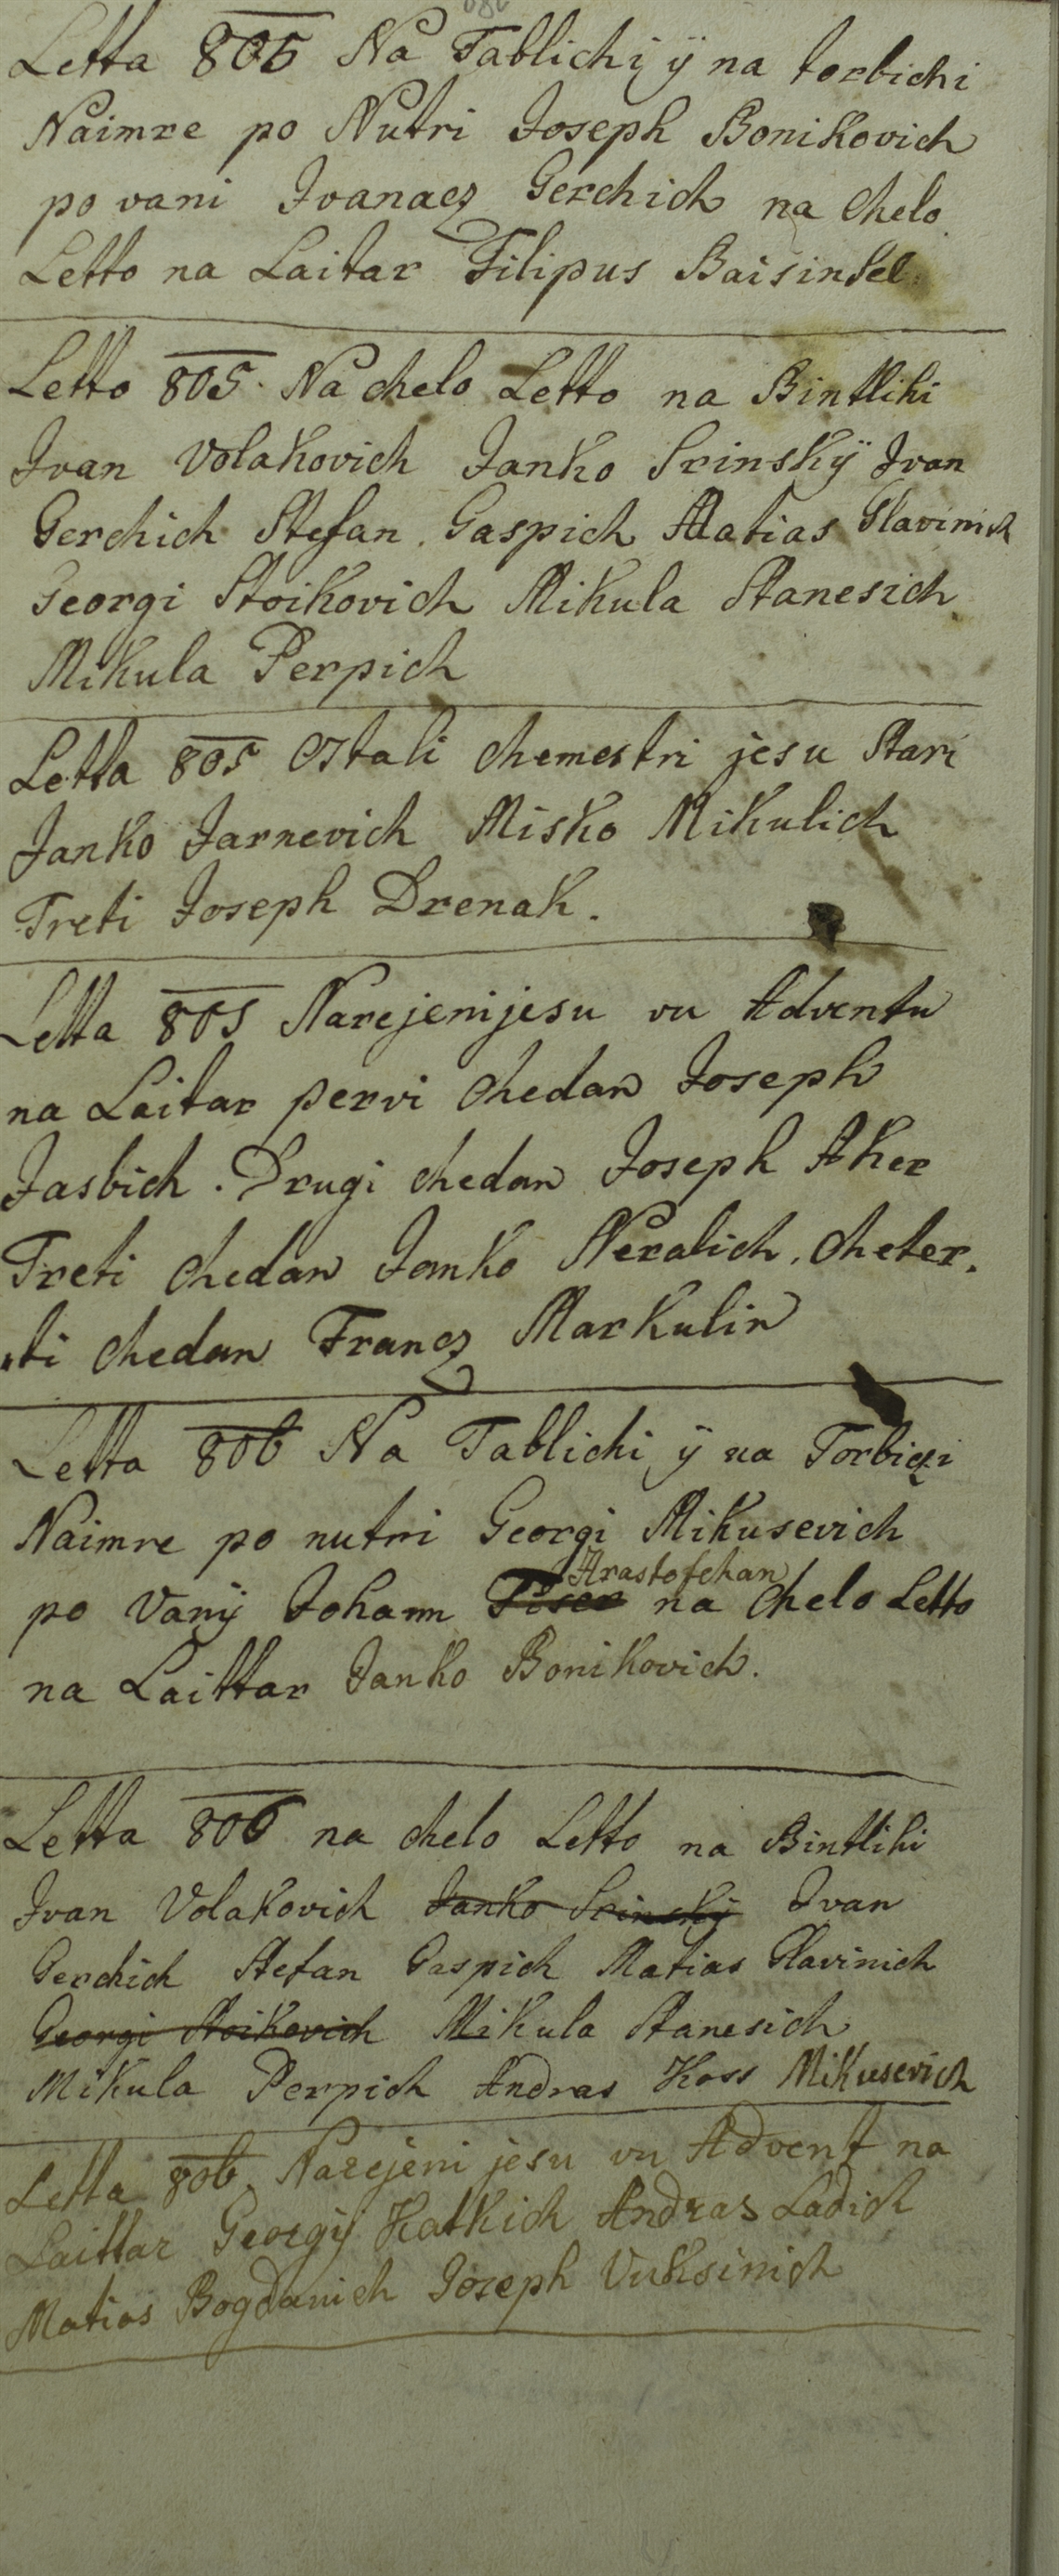 Letta 805 Na Tablichi ÿ na torbichi
Naimre po Nutri Joseph Bonikovich
po vani Ivanacz Gerchich na chelo
Letto na Laitar Filipus Baisintel.
Letto 805. Na chelo Letto na Bintlihi
Ivan Volakovich Janko Srinskÿ Ivan
Gerchich Stefan Gaspich Matias Glavinich
Georgi Stoikovich Mikula Stanesich
Mikula Perpich
Letta 805 Ostali chemestri jesu Stari
Janko Jarnevich Misko Mikulich
Treti Joseph Drenak.
Letta 805 Narejeni jesu vu Adventu
na Laitar pervi chedan Joseph
Jasbich. Drugi chedan Joseph Aker
Treti chedan Janko Neralich. cheter.
ti chedan Francz Markulin
Letta 806 Na Tablichi ÿ na Torbiczi
Naimre po nutri Georgi Mikusevich
Hrastofchan
po Vanÿ Johann Tiser na chelo Letto
na Laittar Janko Bonikovich.
Letta 806 na chelo Letto na Bintlihi
Ivan Volakovich Janko Srinskÿ Ivan
Gerchich Stefan Gaspich Matias Glavinich
Georgi Stoikovich Mikula Stanesich
Mikula Perpich Andras Koss Mikusevich
Letta 806. Narejeni jesu vu Advent na
Laittar Georgÿ Katkich Andras Ladich
Matias Bogdanich Joseph Vuksinich